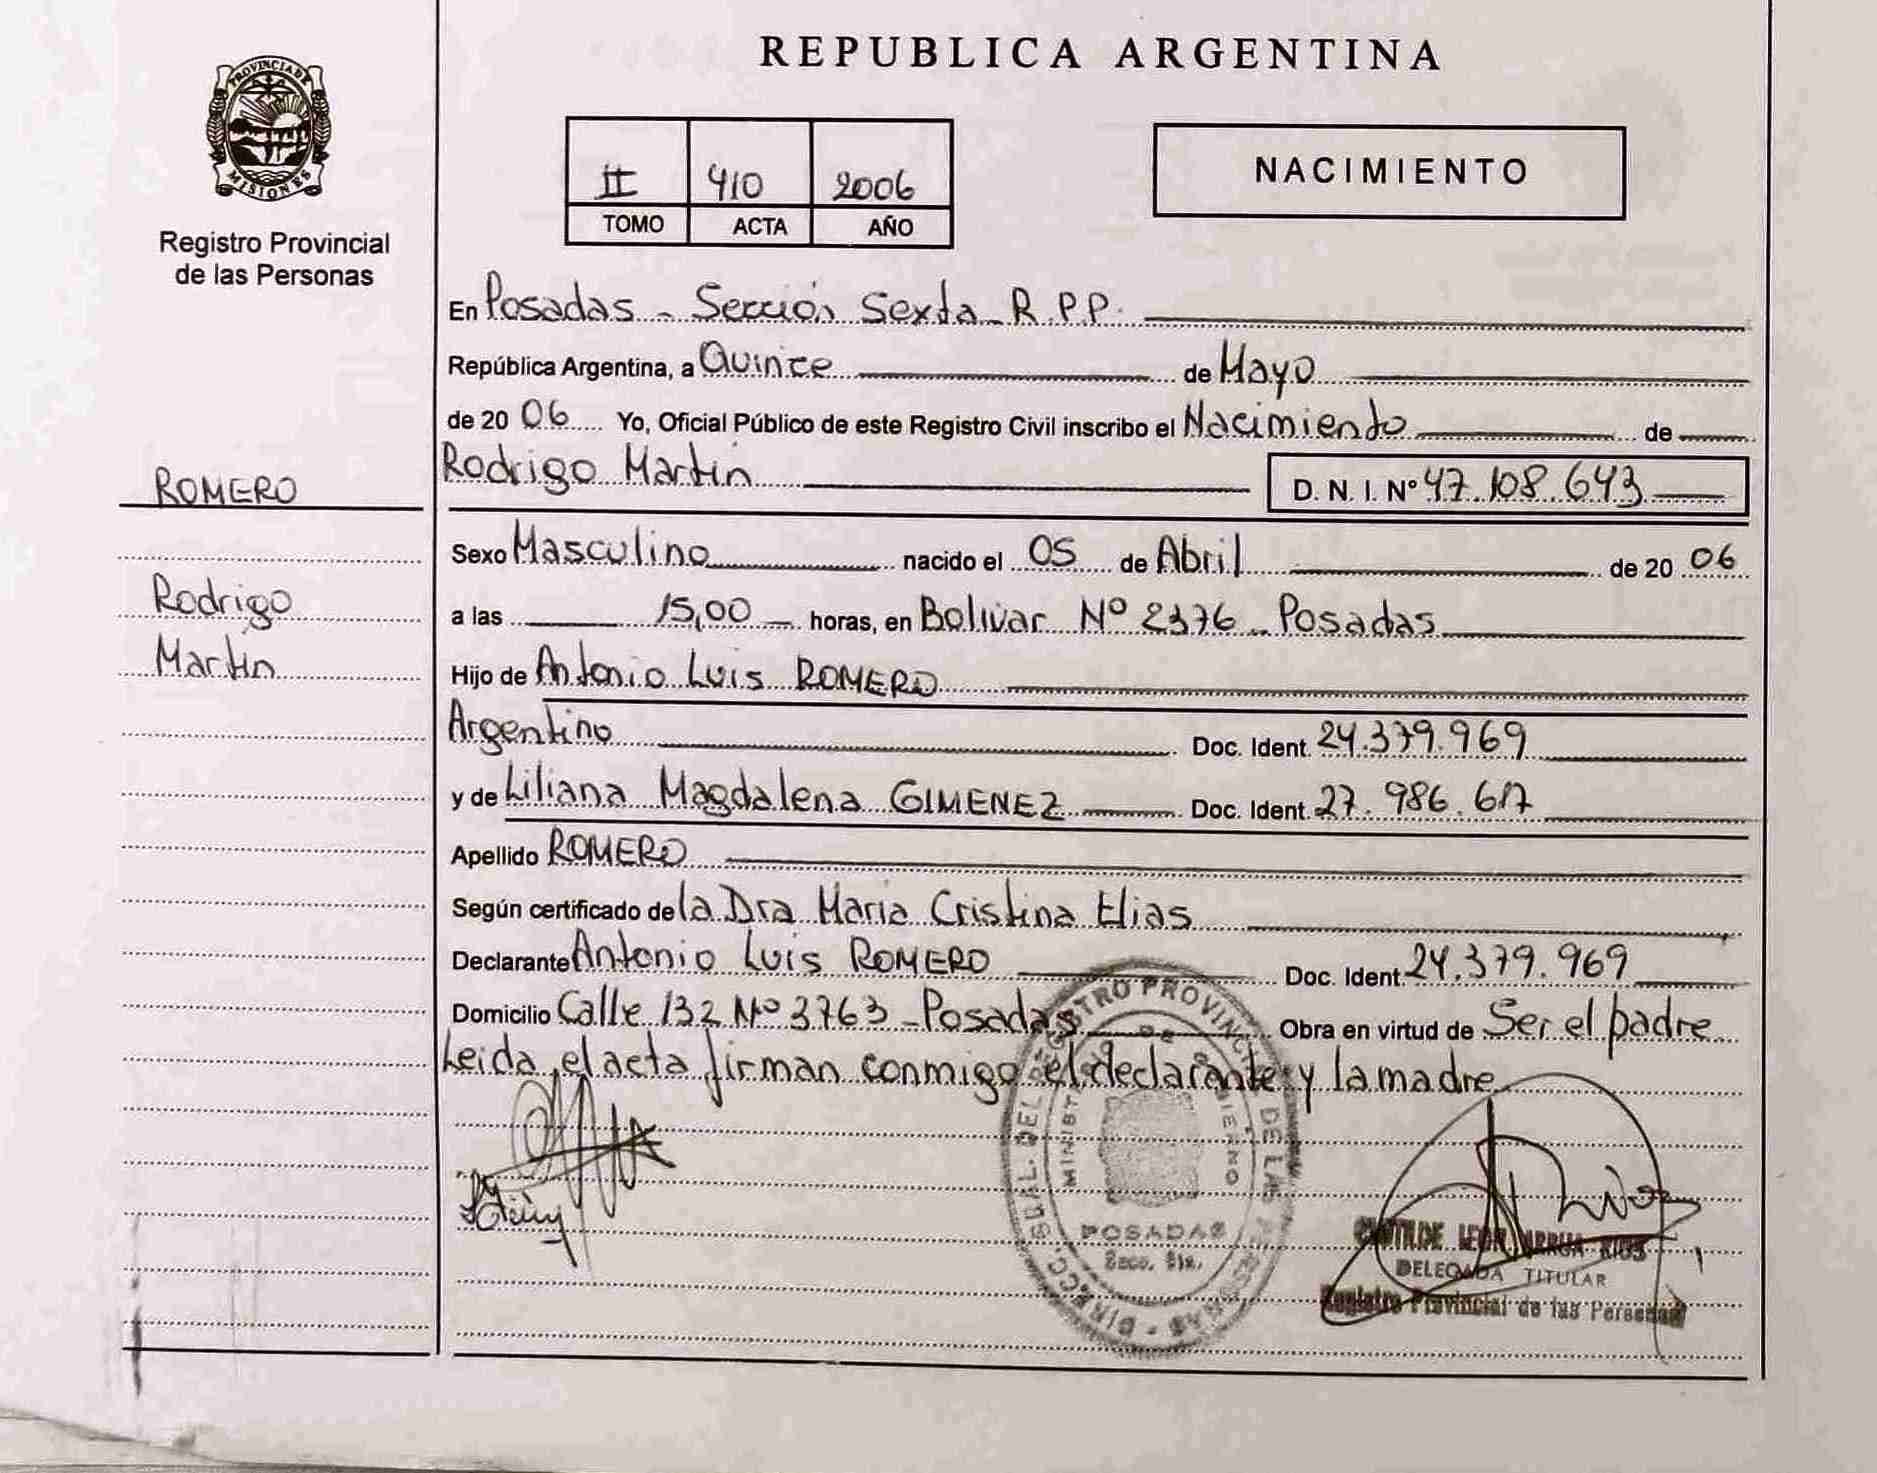 PROVINCIA DE
MISIONES
Registro Provincial
de las Personas
REPUBLICA ARGENTINA
II 410 2006
TOMO ACTA AÑO
NACIMIENTO
En Posadas - Sección Sexta R.P.P.
República Argentina, a Quince de Mayo
de 20 06 Yo, Oficial Público de este Registro Civil inscribo el Nacimiento de
Rodrigo Martín D. N. I. Nº 47.108.643
ROMERO
Rodrigo
Martín
Sexo Masculino nacido el 05 de Abril de 20 06
a las 15,00 horas, en Bolivar Nº 2376 - Posadas
Hijo de Antonio Luis ROMERO
Argentino Doc. Ident. 24.379.969
y de Liliana Magdalena GIMENEZ Doc. Ident. 27.986.617
Apellido ROMERO
Según certificado de la Dra Maria Cristina Elias
Declarante Antonio Luis ROMERO Doc. Ident. 24.379.969
Domicilio Calle 132 Nº 3763 - Posadas Obra en virtud de Ser el padre
Leida el acta firman conmigo el declarante y la madre
DIRECC. GRAL. DEL REGISTRO PROVINCIAL DE LAS PERSONAS
MINISTERIO DE GOBIERNO
POSADAS
Secc. 6ta.
DELEGADA TITULAR
Registro Provincial de las Personas